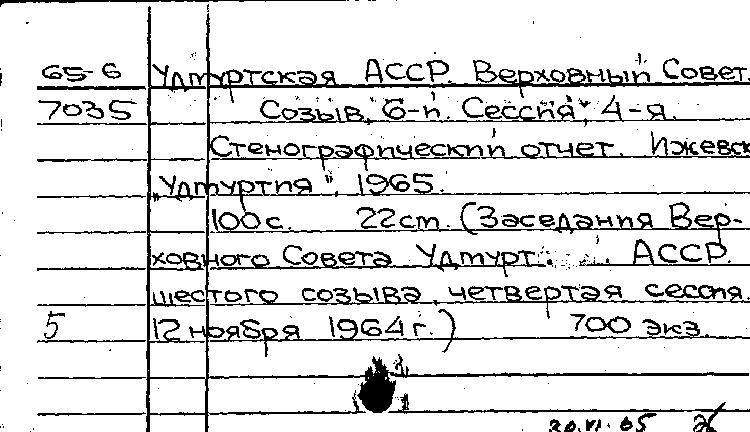 65-6 Удмуртская АССР. Верховный Совет.
7035 Созыв, 6-й. Сессия, 4-я.
Стенографический отчет. Ижевск
„Удмуртия", 1965.
100 с. 22 см. (Заседания Вер-
ховного Совета Удмурт. АССР
шестого созыва, четвертая сессия.
5 12 ноября 1964 г.) 700 экз.